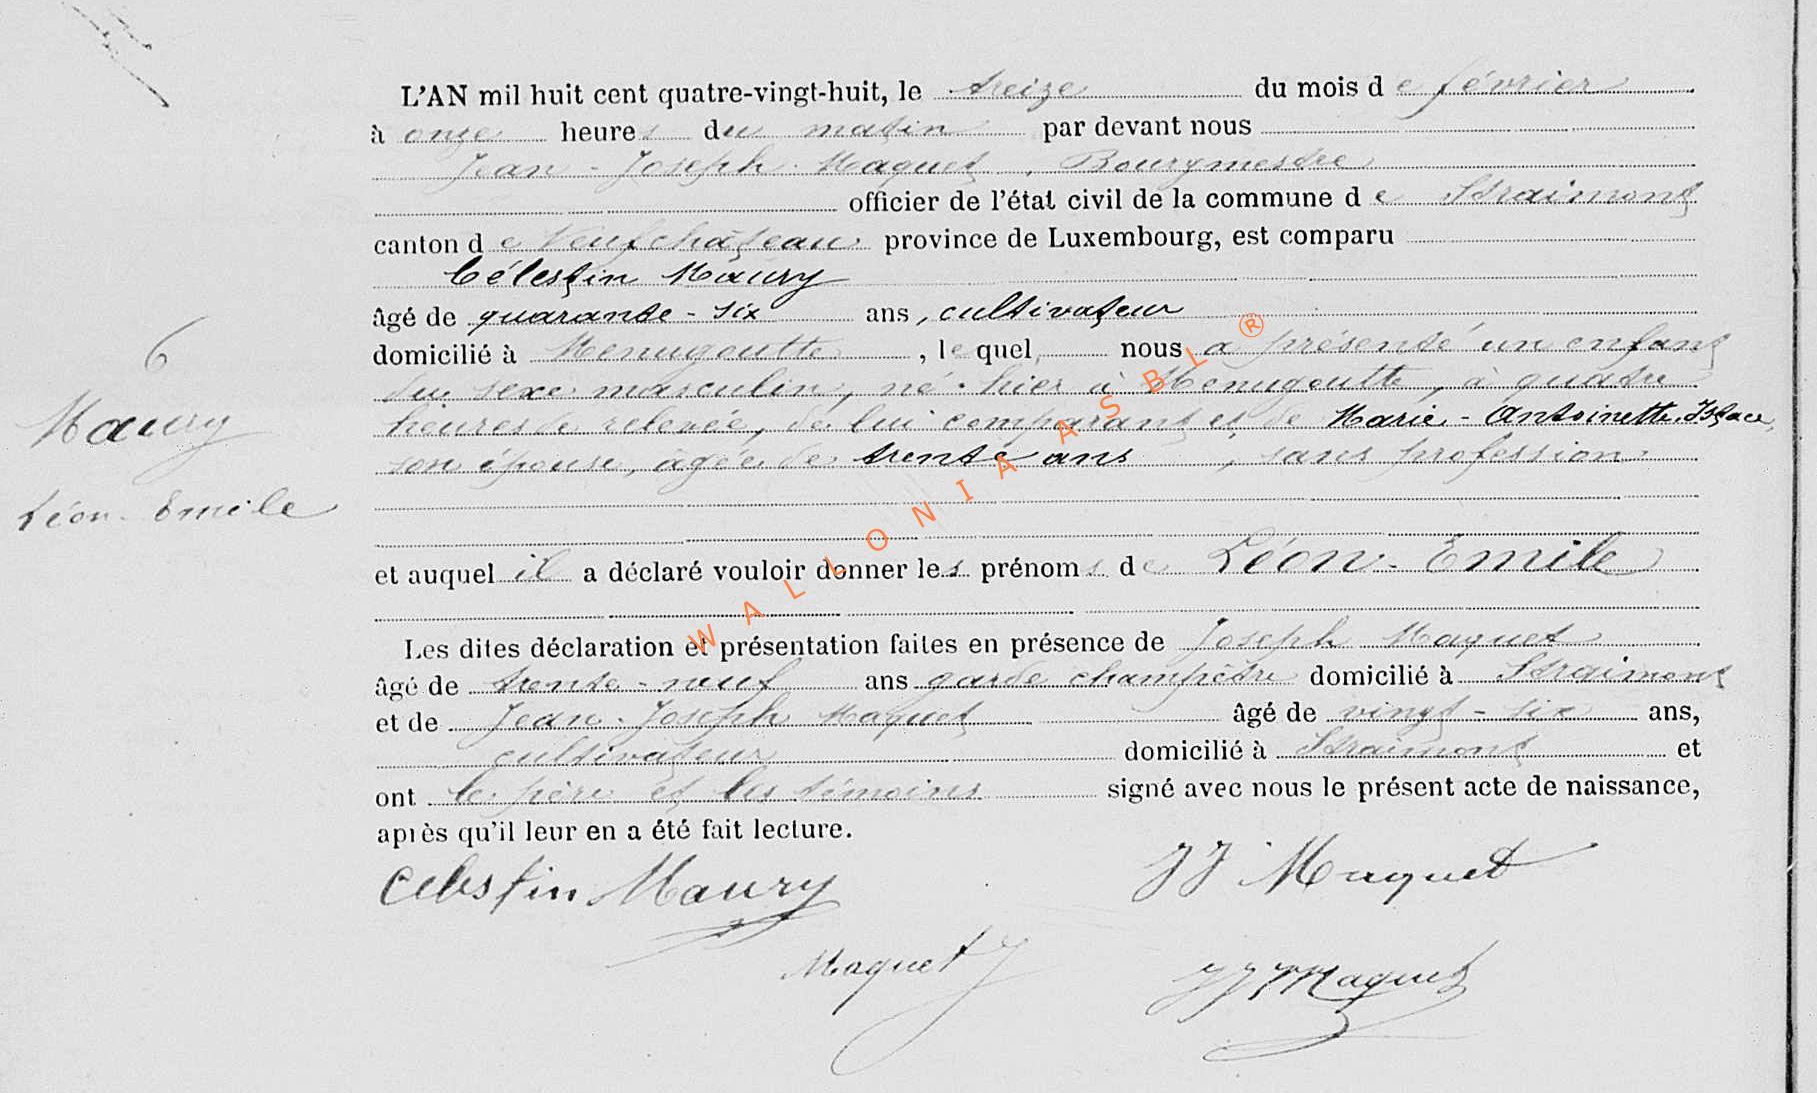 L'AN mil huit cent quatre-vingt-huit, le treize du mois de février
à onze heures du matin par devant nous
Jean-Joseph Maquet, Bourgmestre
officier de l'état civil de la commune de Straimont
canton de Neufchâteau province de Luxembourg, est comparu
Célestin Maury
âgé de quarante-six ans, cultivateur
domicilié à Menugoutte, lequel, nous a présenté un enfant
du sexe masculin, né hier à Menugoutte, à quatre
heures de relevée, de lui comparant et de Marie-Antoinette Istace,
son épouse, âgée de trente ans, sans profession
et auquel il a déclaré vouloir donner les prénoms de Léon-Emile
Les dites déclaration et présentation faites en présence de Joseph Maquet
âgé de trente-neuf ans garde champêtre domicilié à Straimont
et de Jean-Joseph Maquet âgé de vingt-six ans,
cultivateur domicilié à Straimont et
ont le père et les témoins signé avec nous le présent acte de naissance,
après qu'il leur en a été fait lecture.
Celestin Maury
JJ Maquet
Maquet J
JJ Maquet
6
Maury
Léon-Emile
WALLONIA ASBL ®